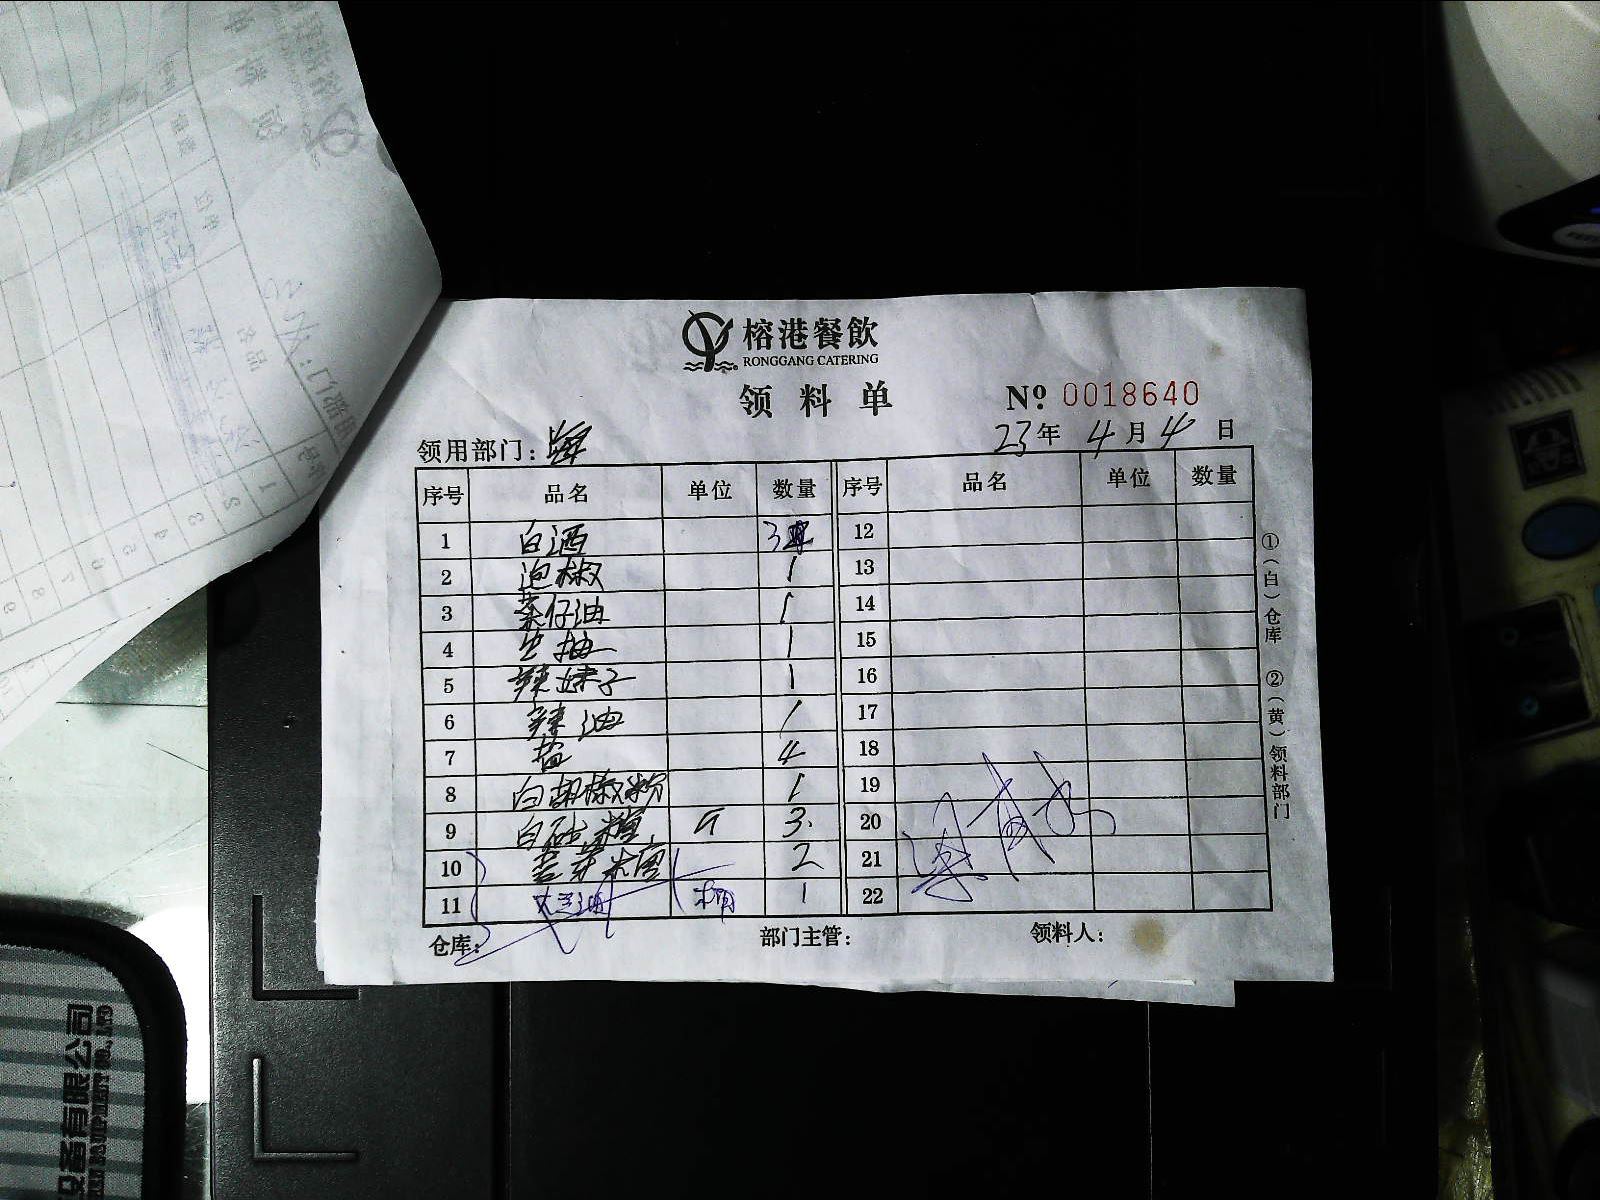 榕港餐飲
RONGGANG CATERING
领料单
№ 0018640
23年 4月 4日
领用部门：
序号 品名 单位 数量 序号 品名 单位 数量
1 白酒 3 12
2 泡椒 1 13
3 菜仔油 1 14
4 生抽 1 15
5 辣妹子 1 16
6 辣油 1 17
7 盐 4 18
8 白胡椒粉 1 19
9 白砂糖 斤 3 20
10 2 21
11 大豆油 桶 1 22
仓库： 部门主管： 领料人：
①（白）仓库 ②（黄）领料部门
设备有限公司